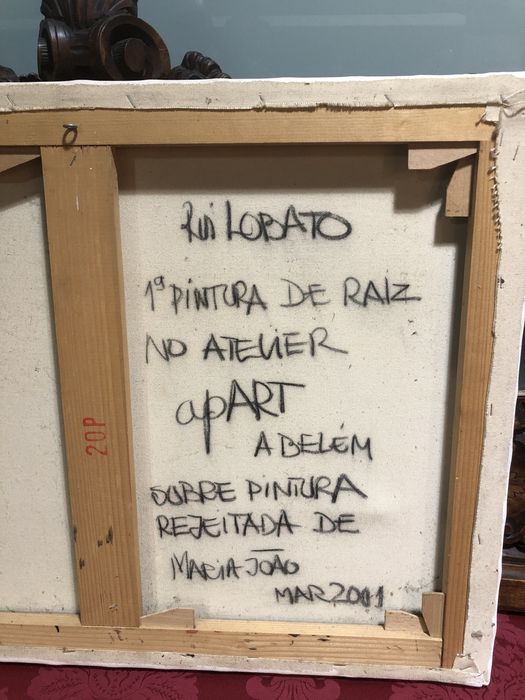 Rui LOBATO
1ª PINTURA DE RAIZ
NO ATELIER
apART
A BELÉM
SOBRE PINTURA
REJEITADA DE
MARIA JOÃO
MAR 2001
20P